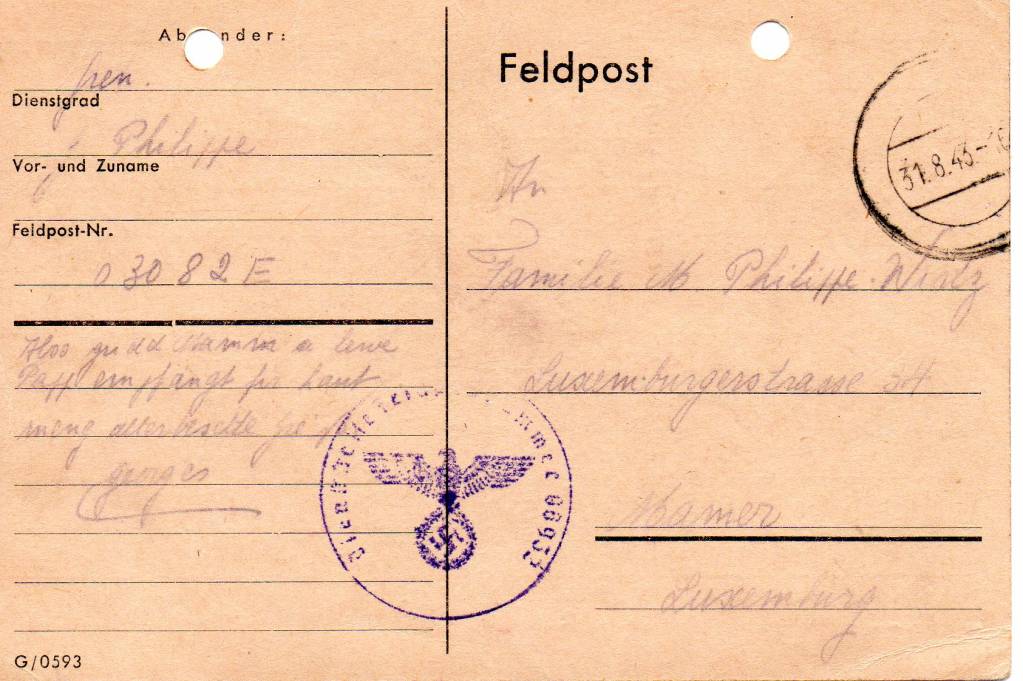 Absender:
Gren.
Dienstgrad
Philippe
Vor- und Zuname
Feldpost-Nr.
03082 E
Also gudd Mamm a lewe
Papp empfängt fir haut
meng allerbeschte
Georges
G/0593
Feldpost
31.8.43
An
Familie M Philippe-Wirtz
Luxemburgerstrasse 34
Mamer
Luxemburg
Dienststelle 06933